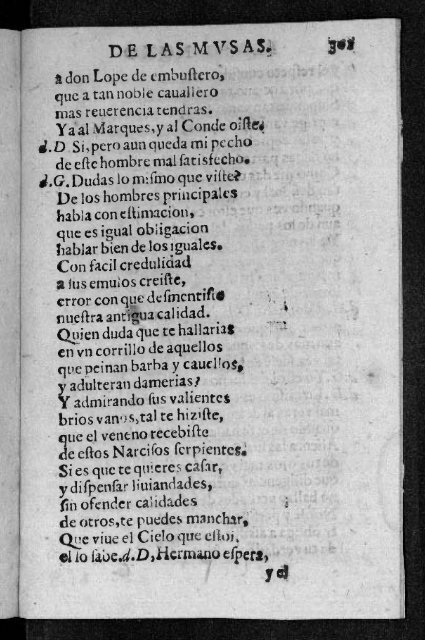 DE LAS MVSAS. 301
a don Lope de embuſtero,
que a tan noble cauallero
mas reuerencia tendras.
Ya al Marques, y al Conde oiſte.
d. D Si, pero aun queda mi pecho
de eſte hombre mal ſatisfecho.
d. G. Dudas lo miſmo que viſte?
De los hombres principales
habla con eſtimacion,
que es igual obligacion
hablar bien de los iguales.
Con facil credulidad
a ſus emulos creiſte,
error con que deſmentiſte
nueſtra antigua calidad.
Quien duda que te hallarias
en vn corrillo de aquellos
que peinan barba y cauellos,
y adulteran damerias?
Y admirando ſus valientes
brios vanos, tal te hiziſte,
que el veneno recebiſte
de eſtos Narciſos ſerpientes.
Si es que te quieres caſar,
y diſpenſar liuiandades,
ſin ofender calidades
de otros, te puedes manchar,
Que viue el Cielo que eſtoi,
el lo ſabe. d. D, Hermano eſpera,
y el